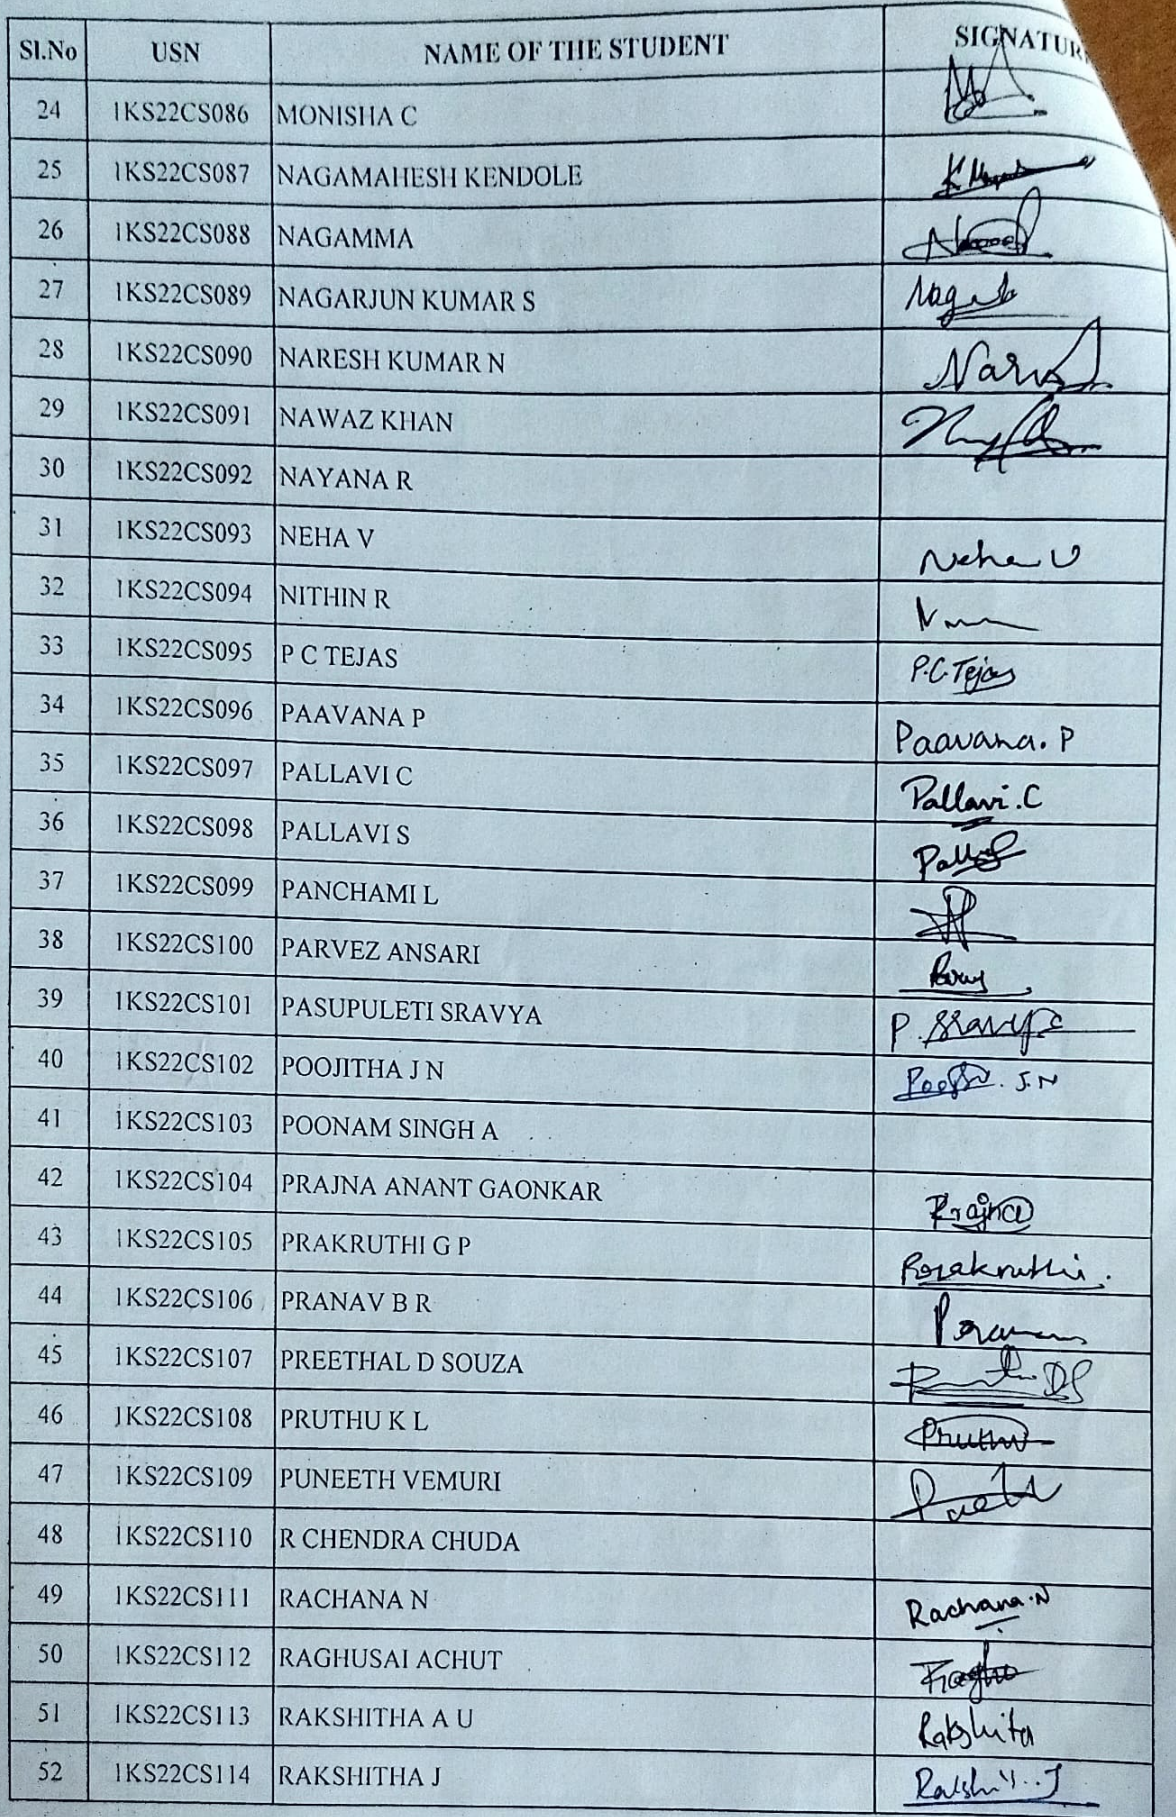 Sl.No USN NAME OF THE STUDENT SIGNATUR
24 1KS22CS086 MONISHA C
25 1KS22CS087 NAGAMAHESH KENDOLE
26 1KS22CS088 NAGAMMA
27 1KS22CS089 NAGARJUN KUMAR S
28 1KS22CS090 NARESH KUMAR N
29 1KS22CS091 NAWAZ KHAN
30 1KS22CS092 NAYANA R
31 1KS22CS093 NEHA V Neha V
32 1KS22CS094 NITHIN R
33 1KS22CS095 P C TEJAS P.C.Tejas
34 1KS22CS096 PAAVANA P Paavana. P
35 1KS22CS097 PALLAVI C Pallavi.C
36 1KS22CS098 PALLAVI S
37 1KS22CS099 PANCHAMI L
38 1KS22CS100 PARVEZ ANSARI
39 1KS22CS101 PASUPULETI SRAVYA P. Sravya
40 1KS22CS102 POOJITHA J N J.N
41 1KS22CS103 POONAM SINGH A
42 1KS22CS104 PRAJNA ANANT GAONKAR Prajna
43 1KS22CS105 PRAKRUTHI G P Prakruthi.
44 1KS22CS106 PRANAV B R
45 1KS22CS107 PREETHAL D SOUZA
46 1KS22CS108 PRUTHU K L Pruthu
47 1KS22CS109 PUNEETH VEMURI
48 1KS22CS110 R CHENDRA CHUDA
49 1KS22CS111 RACHANA N Rachana.N
50 1KS22CS112 RAGHUSAI ACHUT
51 1KS22CS113 RAKSHITHA A U Rakshita
52 1KS22CS114 RAKSHITHA J